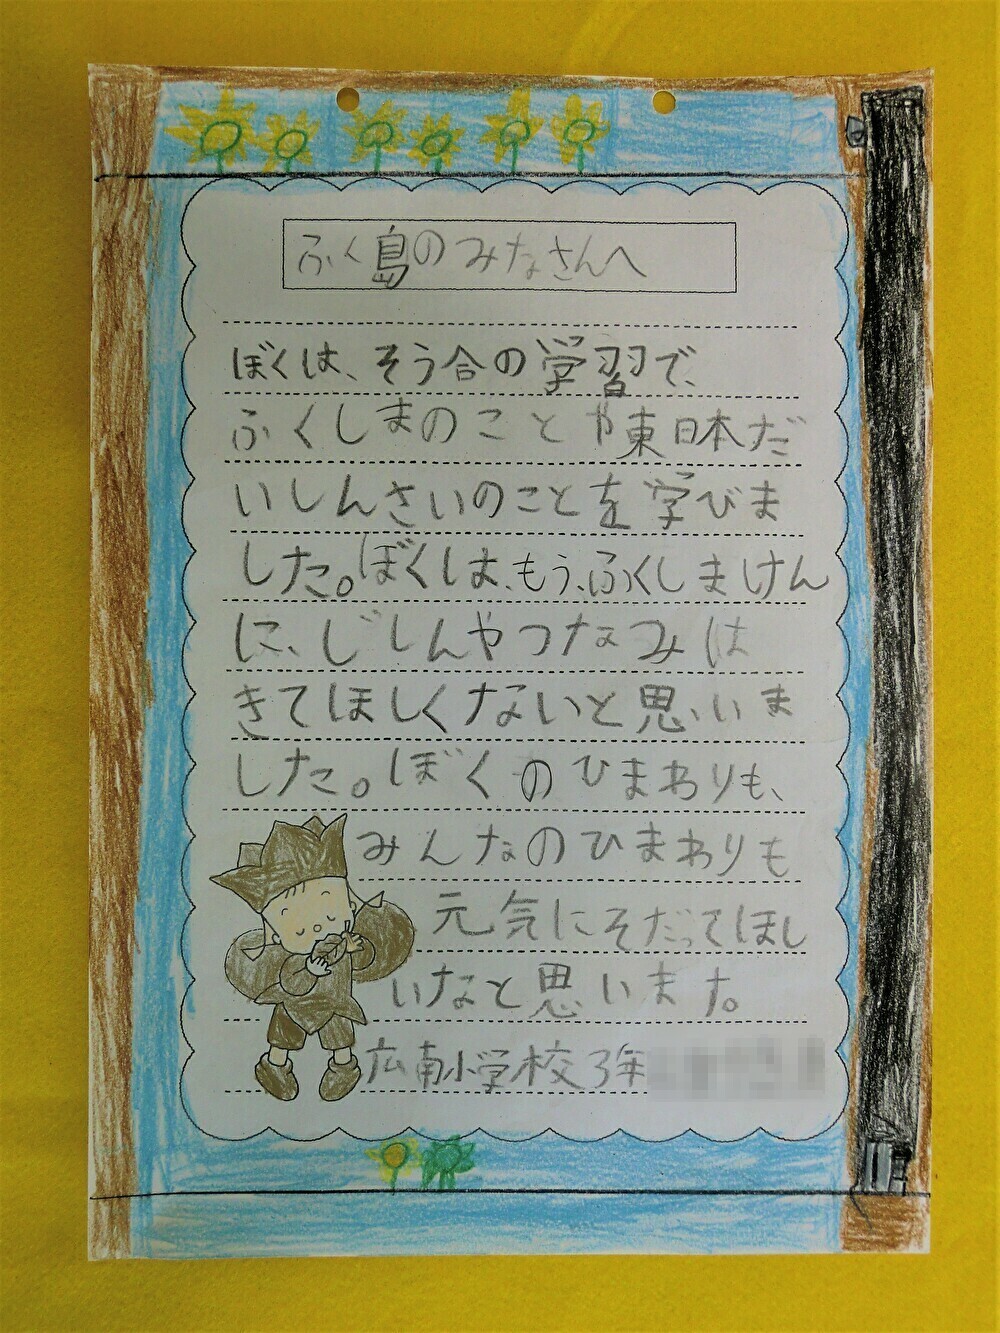 ふく島のみなさんへ
ぼくは、そう合の学習で、
ふくしまのことや東日本だ
いしんさいのことを学びま
した。ぼくは、もう、ふくしまけん
に、じしんやつなみは
きてほしくないと思いま
した。ぼくのひまわりも、
みんなのひまわりも
元気にそだってほし
いなと思います。
広南小学校3年